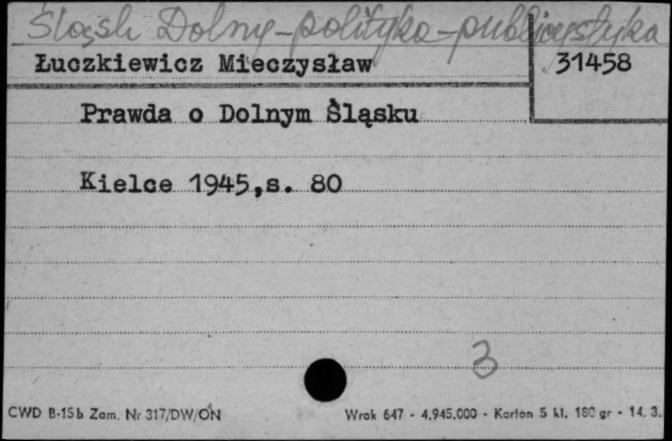 Śląsk Dolny - polityka - publicystyka
Łuczkiewicz Mieczysław
31458
Prawda o Dolnym Śląsku
Kielce 1945,s. 80
3
CWD B-15b Zam. Nr 317/DW/ON Wrak 647 - 4.945.000 - Karton 5 kl. 180 gr - 14. 3.